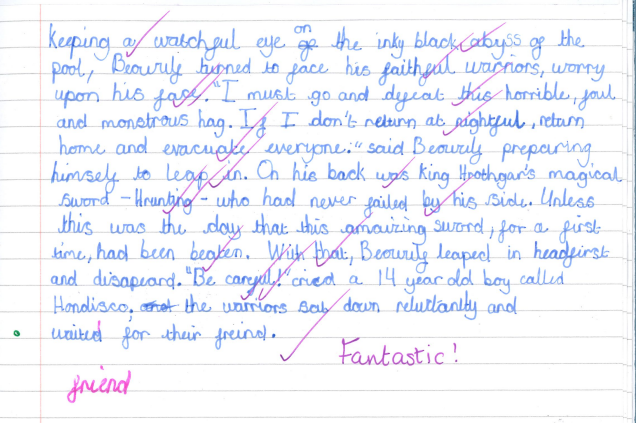 Keeping a watchful eye on the inky black abyss of the
pool, Beowulf turned to face his faithful warriors, worry
upon his face. "I must go and defeat this horrible, foul
and monstrous hag. If I don't return at nightfull, retarn
home and evacuate everyone." said Beowulf preparing
himself to leap in. On his back was king Hrothgar's magical
sword - Hrunting - who had never failed by his side. Unless
this was the day that this amaizing sword, for a first
time, had been beaten. With that, Beowulf leaped in headfirst
and disapeard. "Be careful!" cried a 14 year old boy called
Hondisco, the warriors sat down reluctantly and
waited for their freind.
Fantastic!
friend